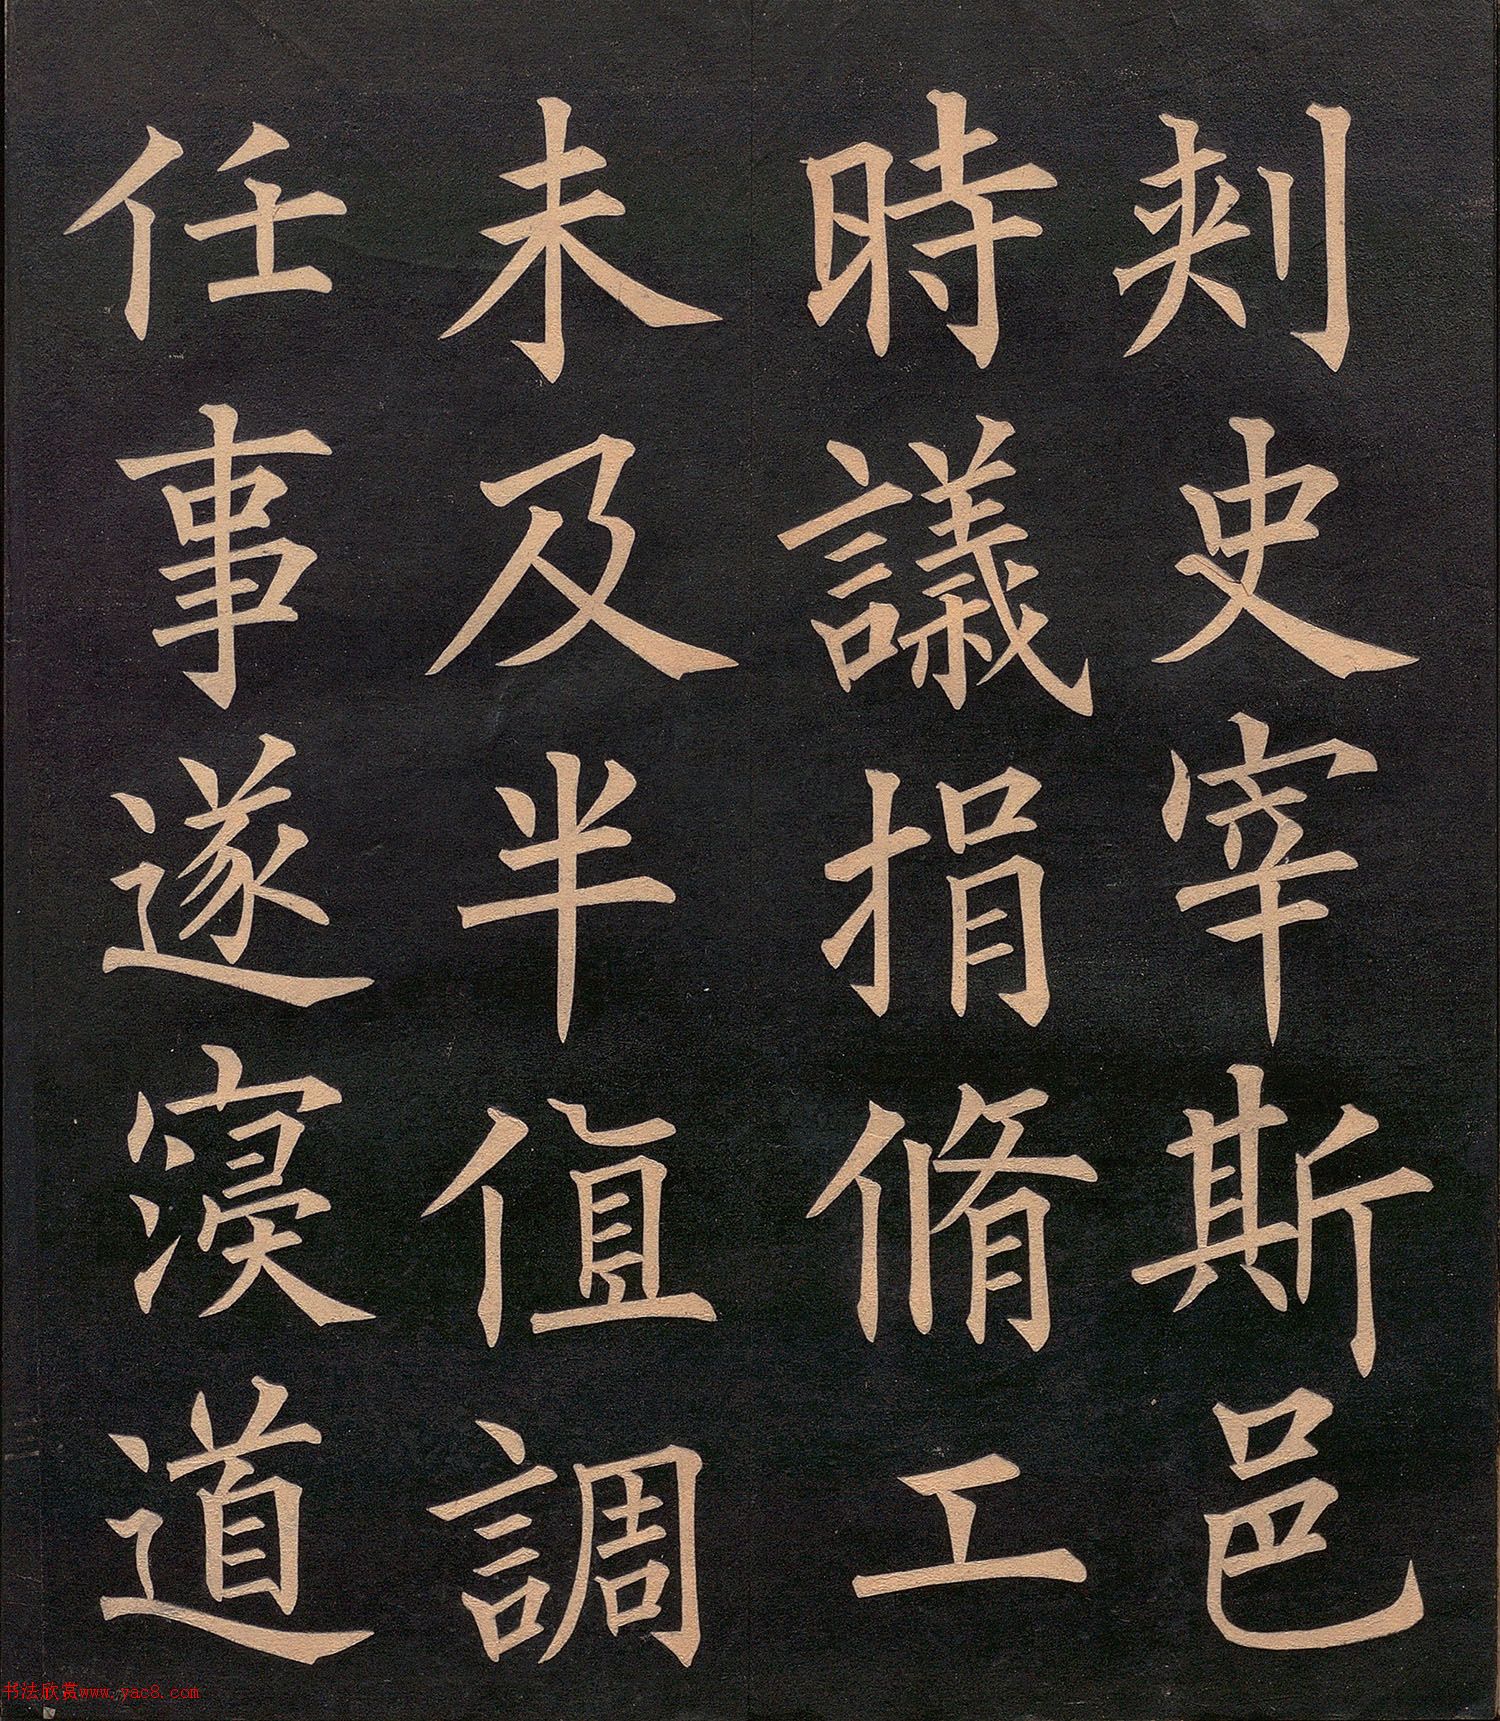 刾史宰斯邑
時議捐脩工
未及半值調
任事遂寢道
书法欣赏www.yac8.com